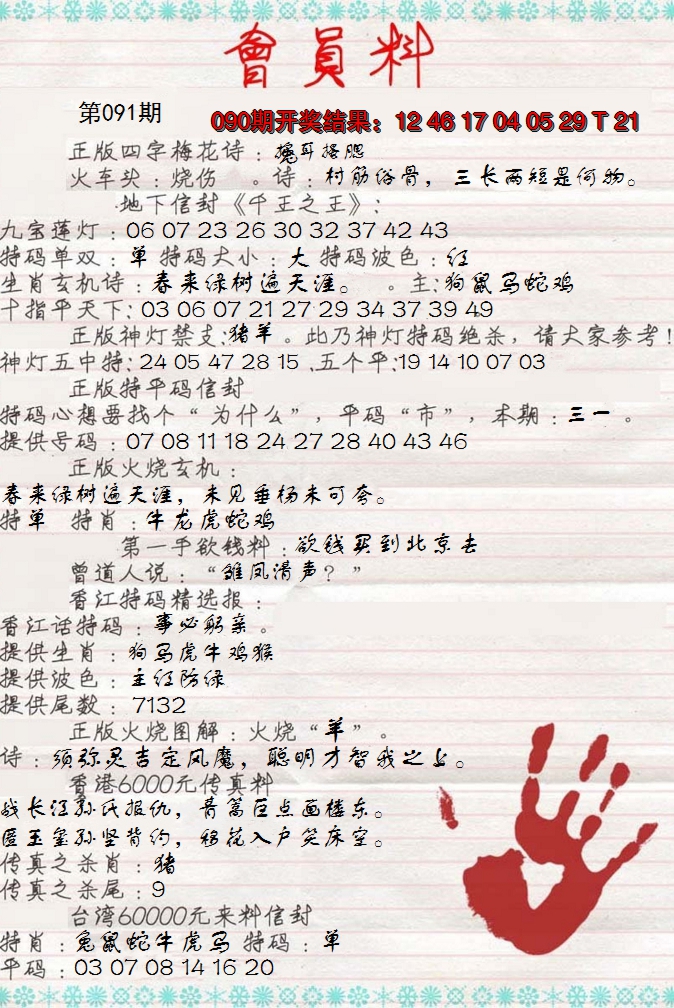 會員料
第091期
090期开奖结果：12 46 17 04 05 29 T 21
正版四字梅花诗：搔耳搭腮
火车头：烧伤　。诗：村筋俗骨，三长两短是何物。
地下信封《千王之王》：
九宝莲灯：06 07 23 26 30 32 37 42 43
特码单双：单 特码大小：大 特码波色：红
生肖玄机诗：春来绿树遍天涯。　。主：狗鼠马蛇鸡
十指平天下：03 06 07 21 27 29 34 37 39 49
正版神灯禁支：猪羊。此乃神灯特码绝杀，请大家参考！
神灯五中特：24 05 47 28 15 .五个平：19 14 10 07 03
正版特平码信封
特码心想要找个“为什么”，平码“市”，本期：三一。
提供号码：07 08 11 18 24 27 28 40 43 46
正版火烧玄机：
春来绿树遍天涯，未见垂杨未可夸。
特单　特肖：牛龙虎蛇鸡
第一手欲钱料：欲钱买到北京去
曾道人说：“雏凤清声？”
香江特码精选报：
香江话特码：事必躬亲。
提供生肖：狗马虎牛鸡猴
提供波色：主红防绿
提供尾数：7132
正版火烧图解：火烧“羊”。
诗：须弥灵吉定风魔，聪明才智我之上。
香港6000元传真料
战长江孙氏报仇，青篙巨点画楼东。
匿玉玺孙坚背约，移花入户笑床空。
传真之杀肖：猪
传真之杀尾：9
台湾60000元来料信封
特肖：兔鼠蛇牛虎马 特码：单
平码：03 07 08 14 16 20